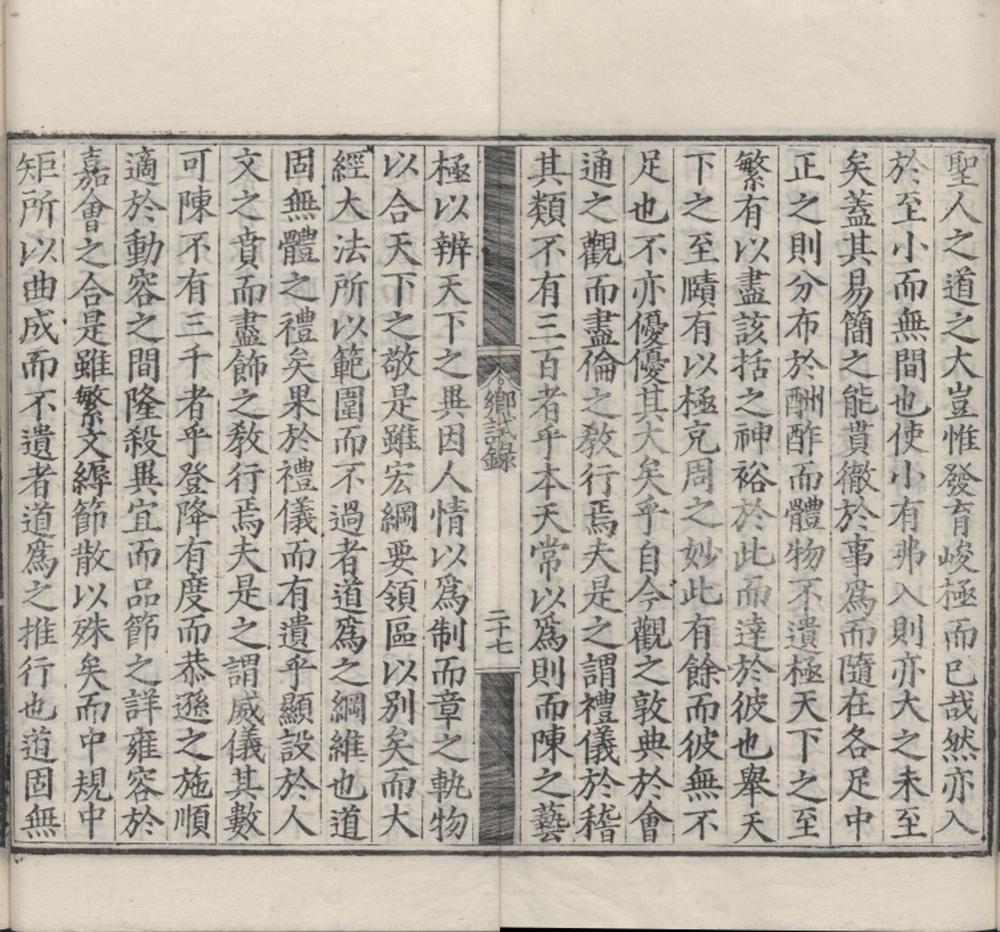 聖人之道之大豈惟發育峻極而已哉然亦入
於至小而無間也使小有弗入則亦大之未至
矣蓋其易簡之能貫徹於事爲而隨在各足中
正之則分布於酬酢而體物不遺極天下之至
繁有以盡該括之神裕於此而達於彼也舉天
下之至賾有以極克周之妙此有餘而彼無不
足也不亦優優其大矣乎自今觀之敦典於會
通之觀而盡倫之敎行焉夫是之謂禮儀於稽
其類不有三百者乎本天常以爲則而陳之藝
鄉試錄
二十七
極以辨天下之異因人情以爲制而章之軌物
以合天下之敬是雖宏綱要領區以別矣而大
經大法所以範圍而不過者道爲之綱維也道
固無體之禮矣果於禮儀而有遺乎顯設於人
文之賁而盡飾之敎行焉夫是之謂威儀其數
可陳不有三千者乎登降有度而恭遜之施順
適於動容之間隆殺異宜而品節之詳雍容於
嘉會之合是雖繁文縟節散以殊矣而中規中
矩所以曲成而不遺者道爲之推行也道固無